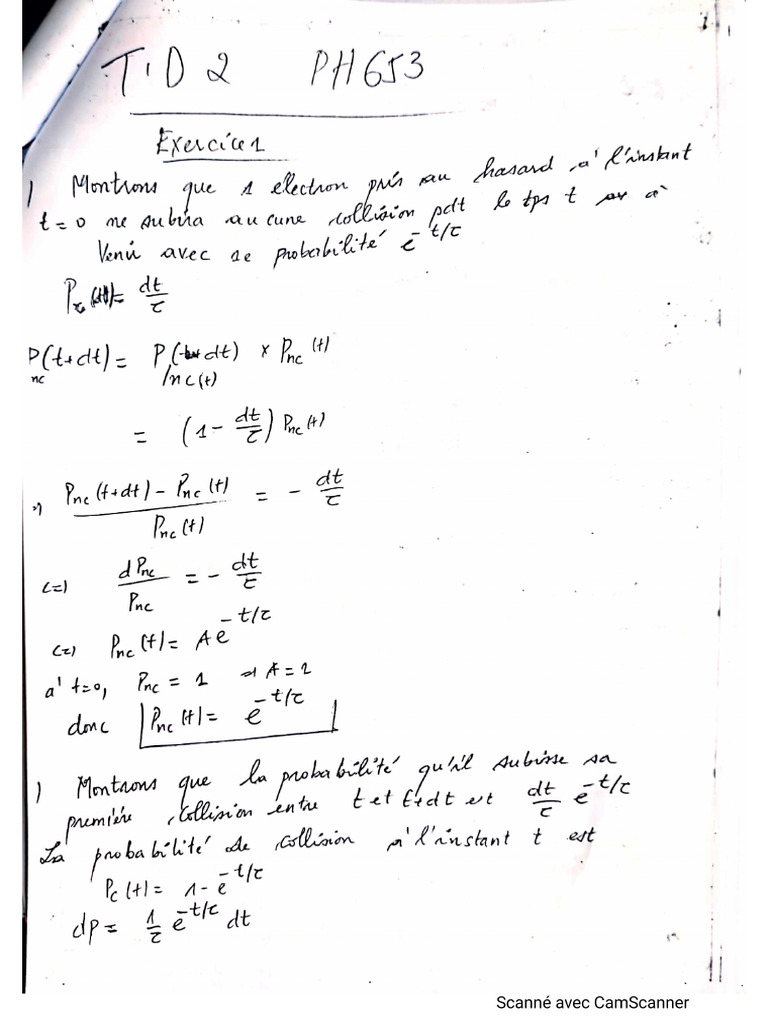 T.D 2 PH653
Exercice 1
) Montrons que 1 electron pris au hasard a' l'instant
t=0 ne subira aucune collision pdt le tps t à
Venir avec 1e probabilité e^{-t/τ}
P_c(dt) = dt/τ
P_nc(t+dt) = P(t+dt)/nc(t) × P_nc(t)
= (1 - dt/τ) P_nc(t)
=> (P_nc(t+dt) - P_nc(t))/P_nc(t) = - dt/τ
<=> dP_nc/P_nc = - dt/τ
<=> P_nc(t) = A e^{-t/τ}
a' t=0, P_nc = 1 => A = 1
donc P_nc(t) = e^{-t/τ}
) Montrons que la probabilité qu'il subisse sa
première collision entre t et t+dt est dt/τ e^{-t/τ}
La probabilité de collision a' l'instant t est
P_c(t) = 1 - e^{-t/τ}
dp = 1/τ e^{-t/τ} dt
Scanné avec CamScanner